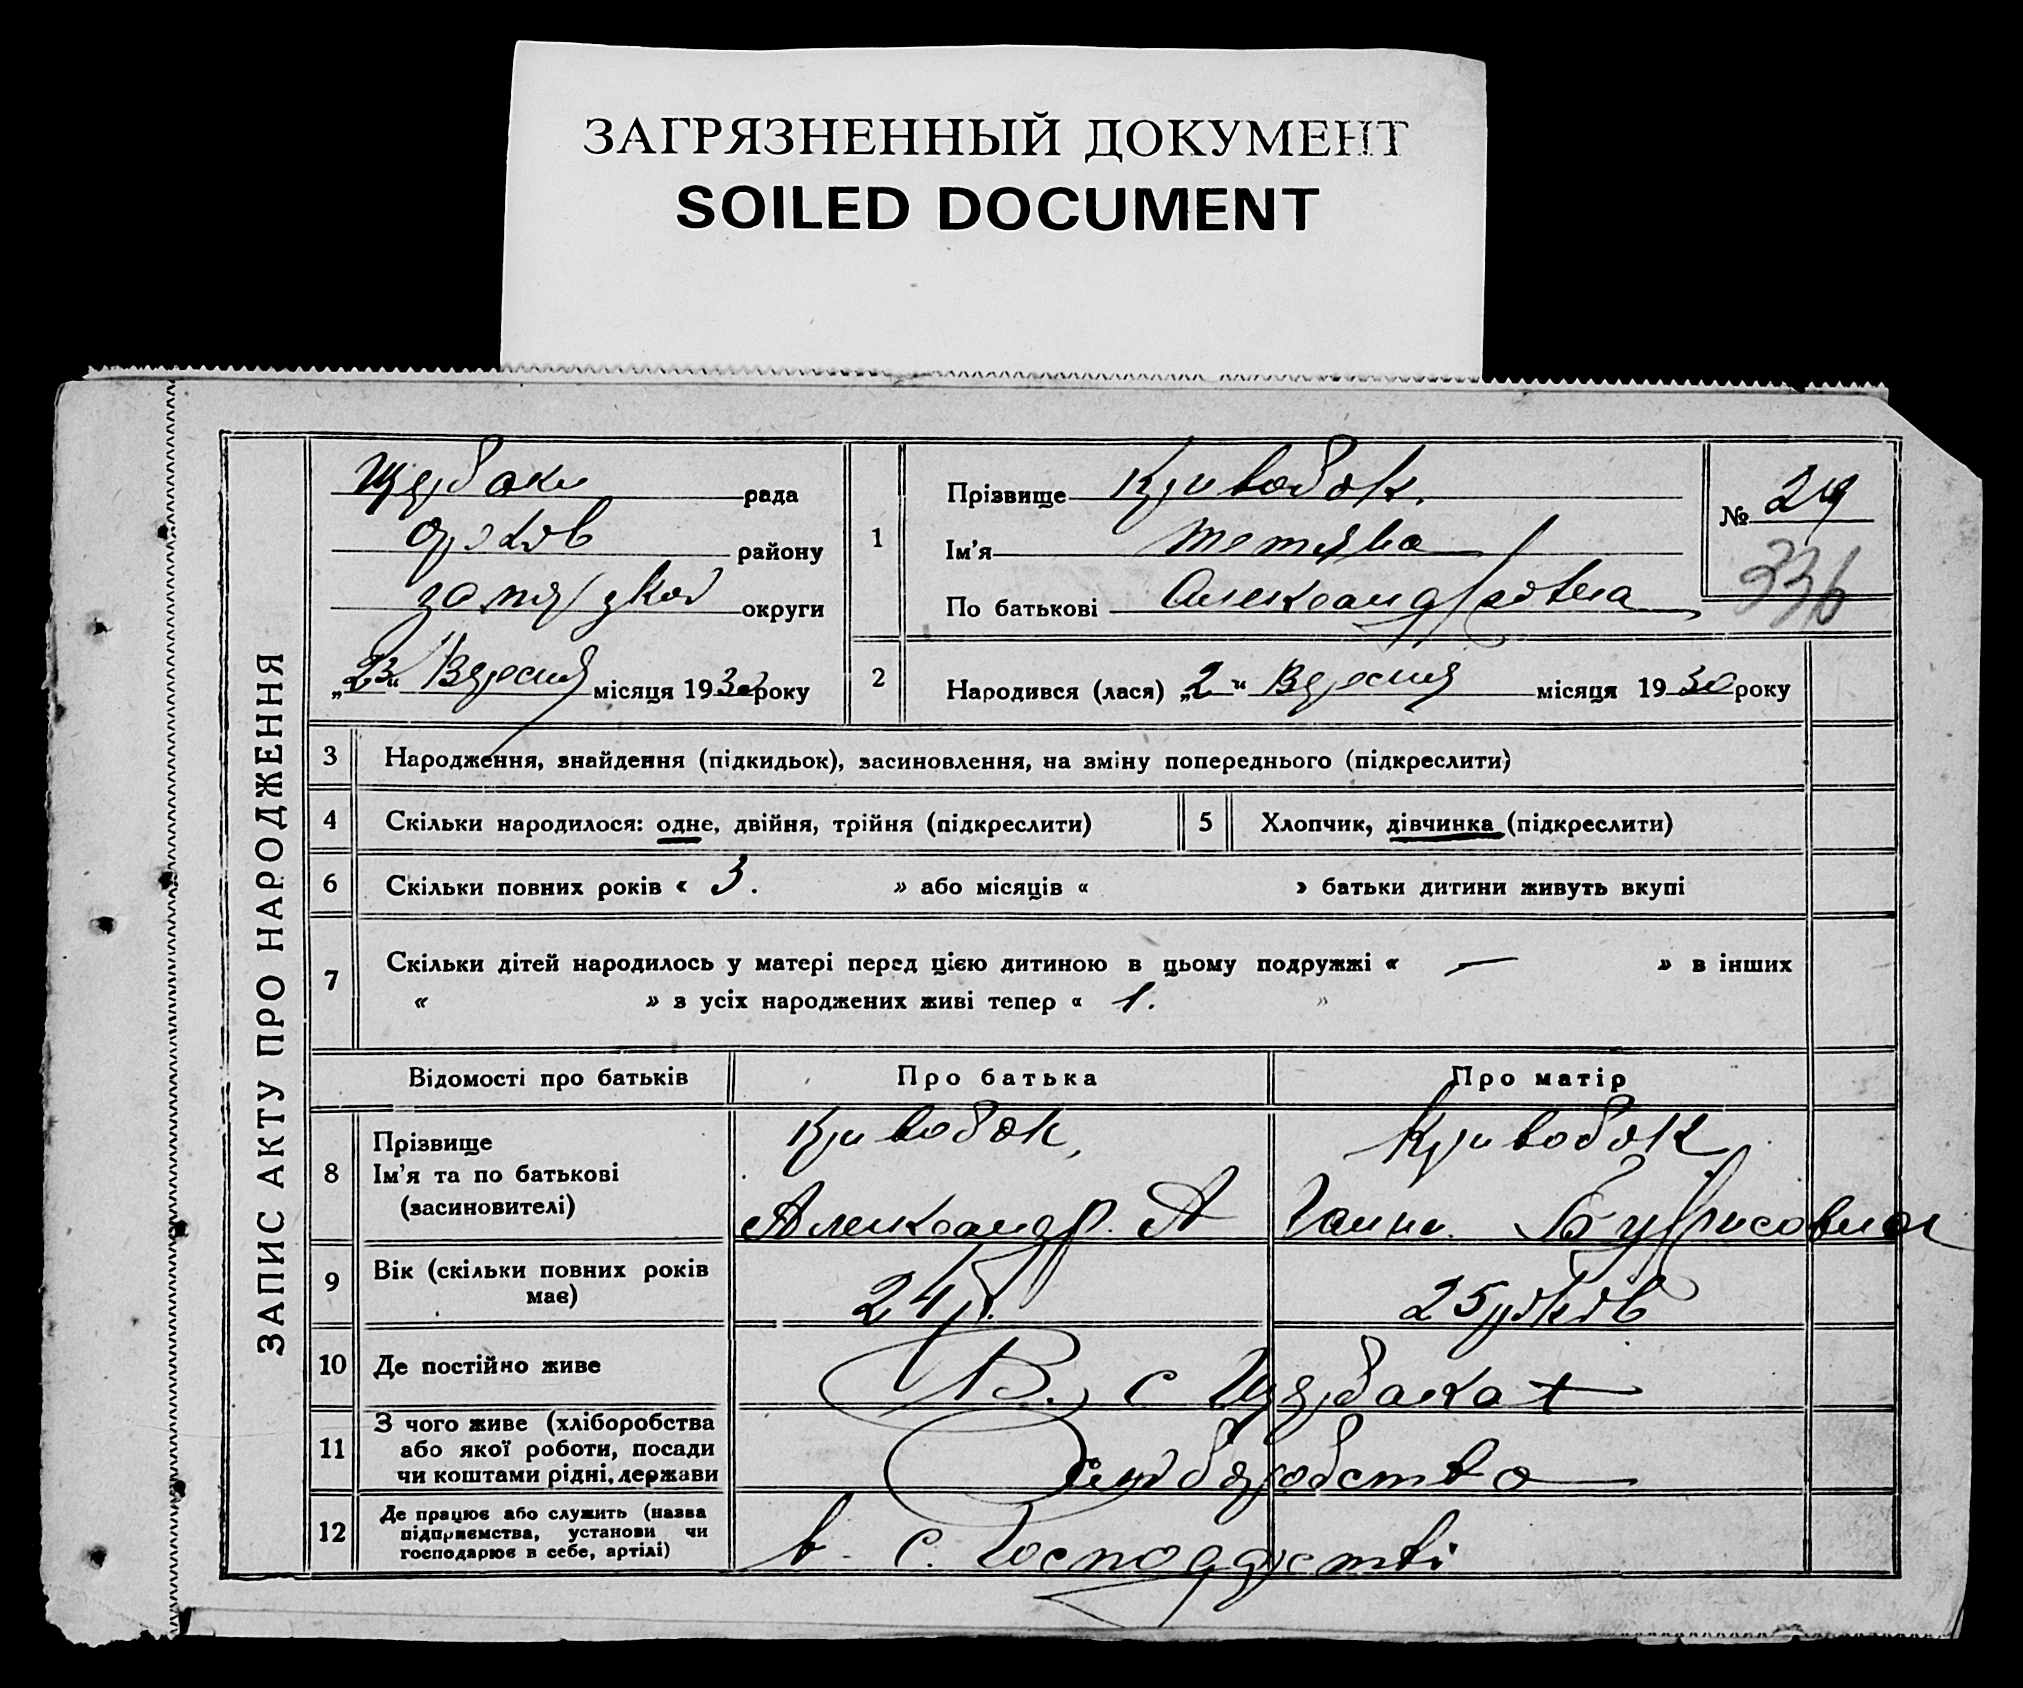 ЗАГРЯЗНЕННЫЙ ДОКУМЕНТ
SOILED DOCUMENT
ЗАПИС АКТУ ПРО НАРОДЖЕННЯ
Щербаки рада
району
округи
„23“ Вересня місяця 1930 року
1
Прізвище Кривобок.
Ім'я Тетяна
По батькові Александровна
№ 29
336
2
Народився (лася) „2“ Вересня місяця 1930 року
3 Народження, знайдення (підкидьок), засиновлення, на зміну попереднього (підкреслити)
4 Скільки народилося: одне, двійня, трійня (підкреслити)
5 Хлопчик, дівчинка (підкреслити)
6 Скільки повних років « 3. » або місяців « » батьки дитини живуть вкупі
7 Скільки дітей народилось у матері перед цією дитиною в цьому подружжі « — » в інших
« » з усіх народжених живі тепер « 1. »
Відомості про батьків Про батька Про матір
8 Прізвище
Ім'я та по батькові
(засиновителі)
Кривобок,
Александр. А
Кривобок
Ганна
9 Вік (скільки повних років
має)
24 р.
25 років
10 Де постійно живе
В. с Щербаках
11 З чого живе (хліборобства
або якої роботи, посади
чи коштами рідні, держави
12 Де працює або служить (назва
підприємства, установи чи
господарює в себе, артілі)
в. с.